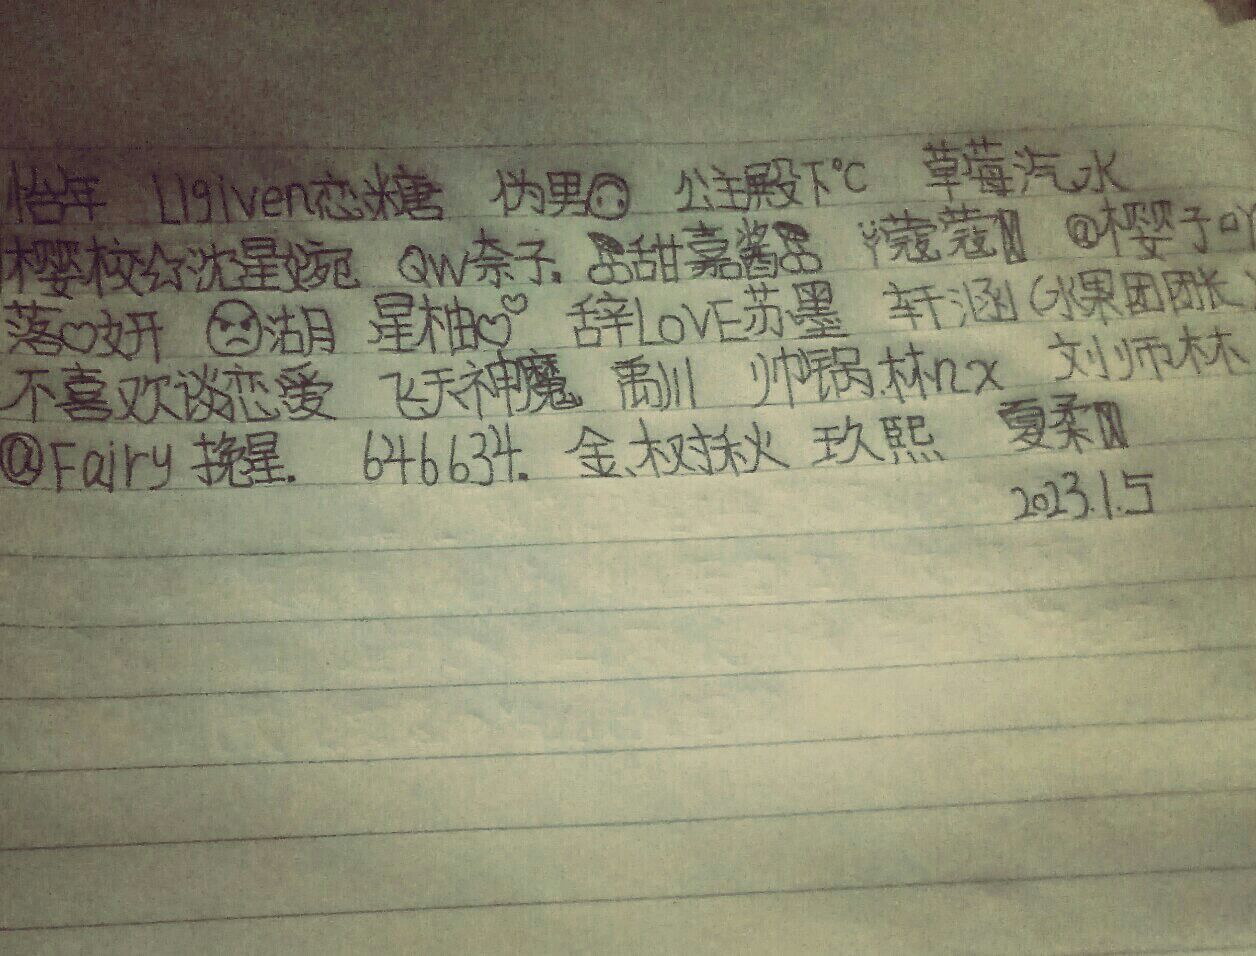 怡年 LIgiven恋糖 伪男 公主殿下°C 草莓汽水
樱校公沈星婉 QW奈子. 甜嘉酱 蔻蔻 @樱子吖
落♡妍 湖 星柚♡♡ 辞LOVE苏墨 轩涵(水果团团长)
不喜欢谈恋爱 飞天神魔 禹川 帅锅.林nx 刘师林
@Fairy 挽星. 646634. 金.树秋 玖熙 夏柔
2023.1.5